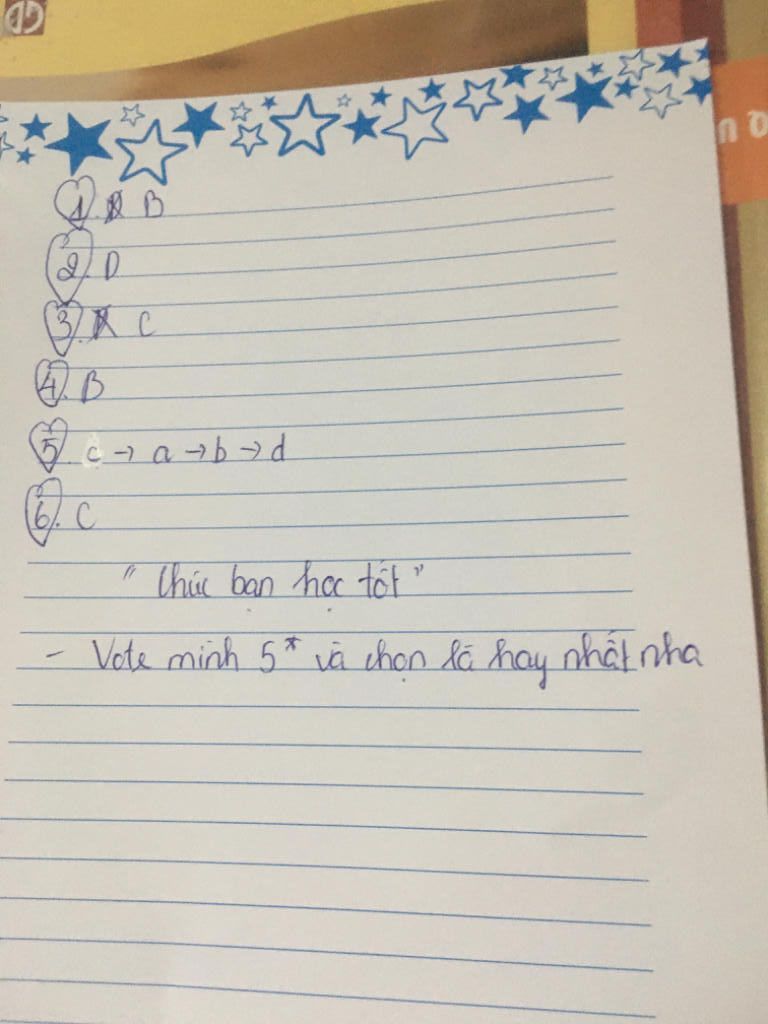 1. B
2. D
3. C
4. B
5. c → a → b → d
6. C
"Chúc bạn học tốt"
- Vote mình 5* và chọn là hay nhất nha